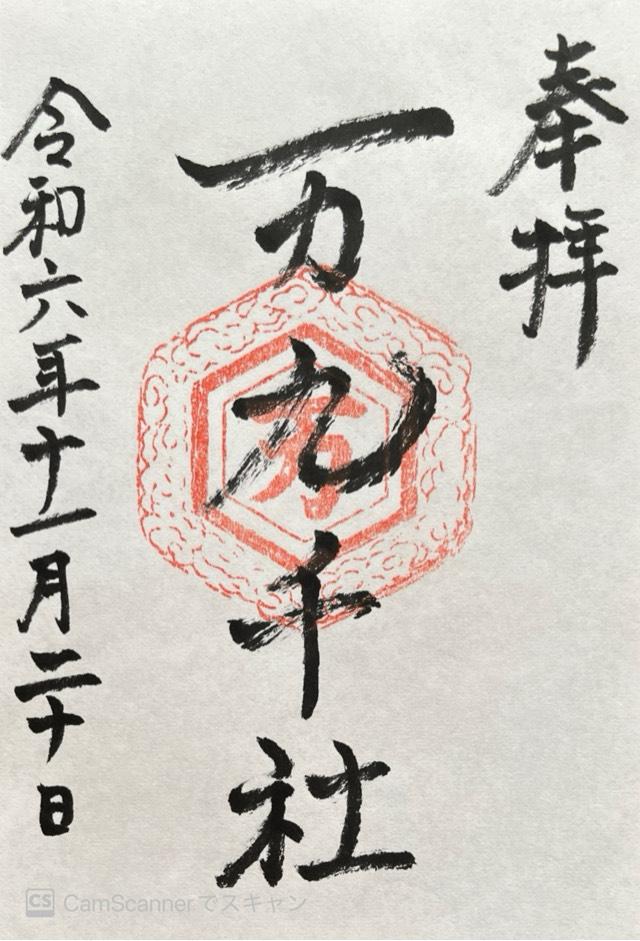 奉拝
万九千社
令和六年十一月二十日
CS CamScannerでスキャン